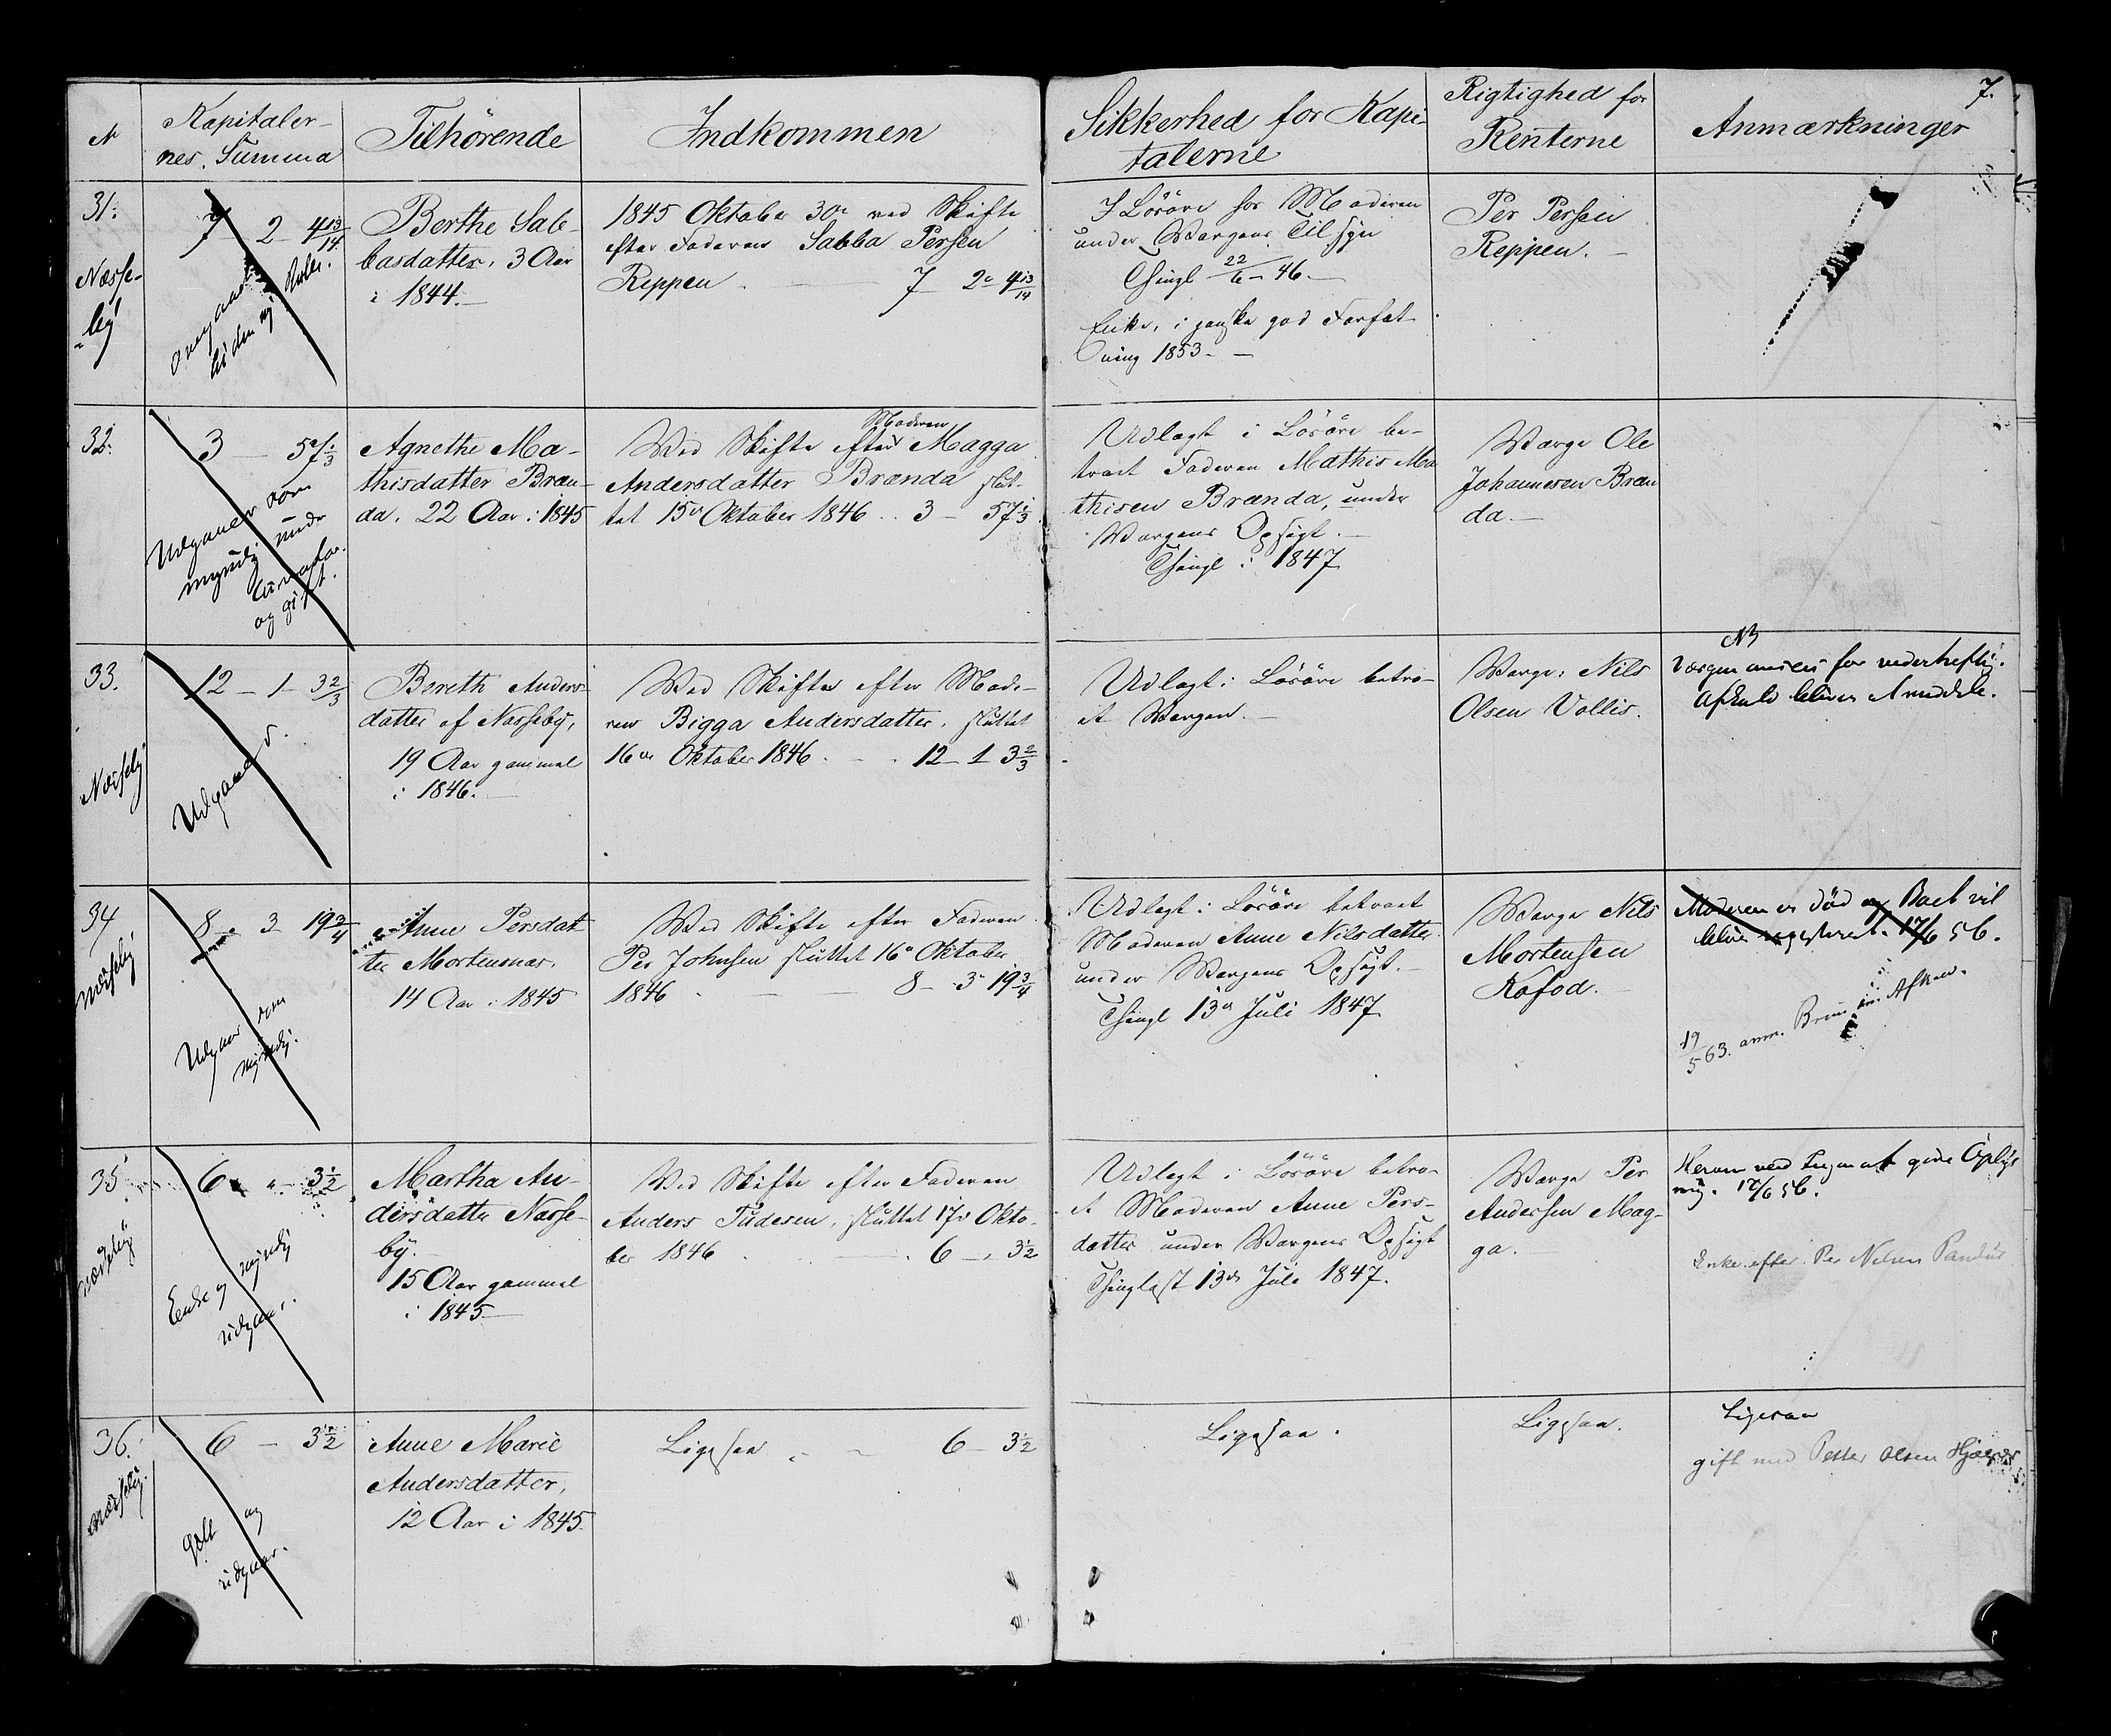 7.
N
Kapitaler-
nes. Summa
Tilhörende
Indkommen
Sikkerhed for Kapi-
talerne
Rigtighed for
Renterne
Anmærkninger
31.
Næsse-
by
7 2 4 13/14
Berthe Sab-
basdatter, 3 Aar
i 1844.
1845 Oktober 30te ved Skifte
efter Faderen Sabba Persen
Reppen - 7 2 4 13/14
I Lösöre hos Moderen
under Værgens Tilsyn
Thingl 22/6 - 46.
Enke, i ganske god Forfat-
ning 1853.
Per Persen
Reppen.
32.
3 - 5 7/3
Udgaaer som
myndig under
Curator
og gift.
Agnethe Ma-
thisdatter Bræn-
da, 22 Aar i 1845
Ved Skifte efter Moderen Magga
Andersdatter Brænda slut-
tet 15de Oktober 1846 .. 3 -
Udlagt i Lösöre be-
troet Faderen Mathis Ma-
thisen Brænda, under
Værgens Opsigt.
Thingl i 1847
Værge Ole
Johannesen Bræn
da.
33.
Næsseby
12 - 1 - 3 2/3
Udgaaed
Bereth Anders-
datter af Næsseby,
19 Aar gammel
i 1846.
Ved Skifte efter Mode-
ren Bigga Andersdatter, sluttet
16de Oktober 1846 - 12 - 1 3 2/3
Udlagt i Lösöre betro-
et Værgen.
Værge: Nils
Olsen Vollis.
NB
Værgen ansees for vederheftig.
34
Næsseby
8 3 19 3/4
Udgaar som
myndig.
Anne Persdat
ter Mortensnæs,
14 Aar i 1845
Ved Skifte efter Faderen
Per Johnsen sluttet 16de Oktober
1846 - 8 - 3 19 3/4
Udlagt i Lösöre betroet
Moderen Anne Nilsdatter
under Værgens Opsigt.
Thingl 13de Juli 1847
Værge Nils
Mortensen
Kofod.
Moderen er död og Boet vil
blive registreret. 17/6 56.
19/5 63. anm.
35
Næsseby
6 " 3 1/2
Enke og myndig
udgaar.
Martha An-
dersdatter Næsse-
by.
15 Aar gammel
i 1845
Ved Skifte efter Faderen
Anders Tudesen, sluttet 17de Okto-
ber 1846 - 6 - 3 1/2
Udlagt i Lösöre betro-
et Moderen Anne Pers-
datter under Værgens Opsigt
Thinglæst 13de Juli 1847.
Værge Per
Andersen Mag-
ga.
Herom veed Ingen at give Oplys
ning. 17/6 56.
Enke efter Per Nilsen
36.
Næsseby.
6 - 3 1/2
Gift og
udgaar.
Anne Marie
Andersdatter,
12 Aar i 1845
Ligesaa - 6 - 3 1/2
Ligesaa.
Ligesaa.
Ligesaa
gift med Petter Olsen